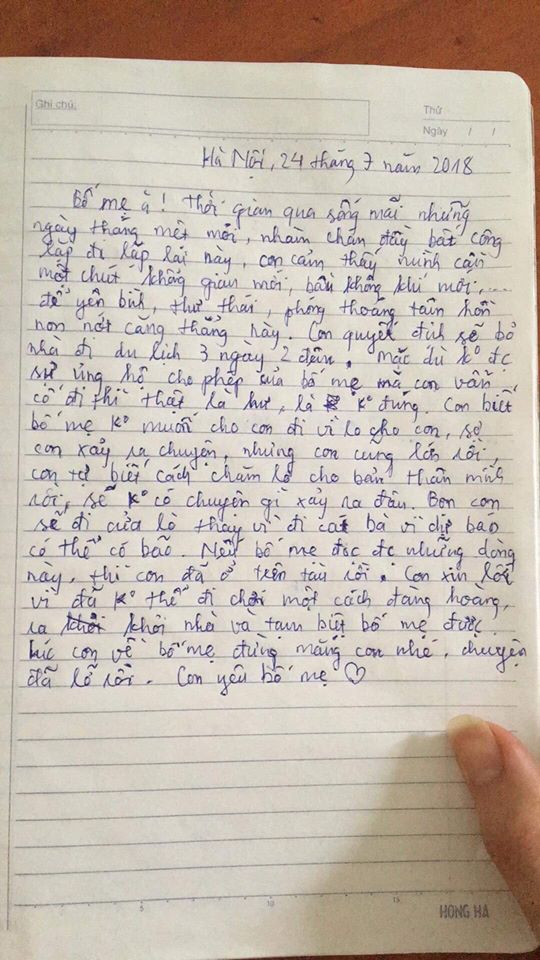 Ghi chú:
Thứ
Ngày / /
Hà Nội, 24 tháng 7 năm 2018
Bố mẹ ạ! Thời gian qua sống mãi những
ngày tháng mệt mỏi, nhàm chán đầy bất công
lặp đi lặp lại này, con cảm thấy mình cần
một chút không gian mới, bầu không khí mới,....
để yên bình, thư thái, phóng thoáng tâm hồn
non nớt căng thẳng này. Con quyết định sẽ bỏ
nhà đi du lịch 3 ngày 2 đêm. mặc dù k° đc
sự ủng hộ cho phép của bố mẹ mà con vẫn
cố đi thì thật là hư, là k° đúng. Con biết
bố mẹ k° muốn cho con đi vì lo cho con, sợ
con xảy ra chuyện, nhưng con cũng lớn rồi,
con tự biết cách chăm lo cho bản thân mình
rồi, sẽ k° có chuyện gì xảy ra đâu. Bọn con
sẽ đi cửa lò thay vì đi cát bà vì dự báo
có thể có bão. Nếu bố mẹ đọc đc những dòng
này, thì con đã ở trên tàu rồi. Con xin lỗi
vì đã k° thể đi chơi một cách đàng hoàng,
ra khỏi nhà và tạm biệt bố mẹ được.
Lúc con về bố mẹ đừng mắng con nhé, chuyện
đã lỡ rồi. Con yêu bố mẹ ♡
5 10 15
HONG HA